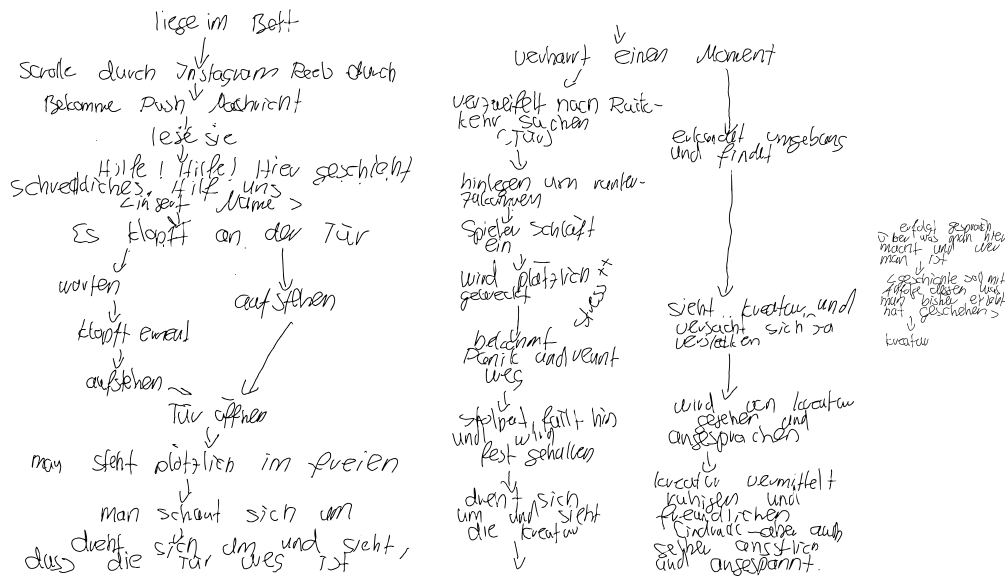 liege im Bett
Scrolle durch Instagram Reels durch
Bekomme Push Nachricht
lese sie
Hilfe! Hilfe! Hier geschieht
schreckliches. Hilf uns
<insert Name>
Es klopft an der Tür
warten
klopft erneut
aufstehen
aufstehen
Tür öffnen
man steht plötzlich im freien
man schaut sich um
dreht sich um und sieht,
dass die Tür weg ist
verharrt einen Moment
verzweifelt nach Rück-
kehr suchen
(Tür)
hinlegen um runter-
zukommen
Spieler schläft
ein
wird plötzlich
geweckt
bekommt
Panik und rennt
weg
stolpert fällt hin
und wird
fest gehalten
dreht sich
um und sieht
die kreatur
erkundet umgebung
und findet
sieht kreatur und
versucht sich zu
verstecken
wird von kreatur
gesehen und
angesprochen
kreatur vermittelt
ruhigen und
freundlichen
Eindruck aber auch
selber ängstlich
und angespannt.
erfolgt gespräch
über was man hier
macht und wer
man ist
<geschichte soll mit
infos dessen was
man bisher erlebt
hat geschehen>
kreatur